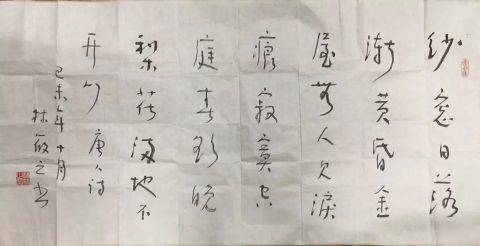 紗窗日落
漸黄昏金
屋無人見淚
痕寂寞空
庭春欲晚
梨花滿地不
开门 唐人诗
己未年十月
林筱之书